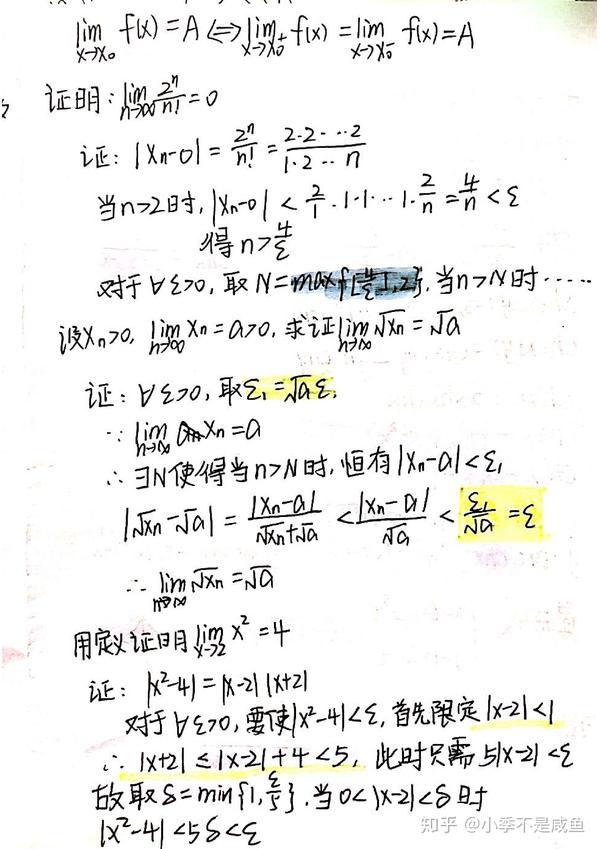 lim x→x₀ f(x) = A ⟺ lim x→x₀⁺ f(x) = lim x→x₀⁻ f(x) = A
证明: lim n→∞ 2ⁿ/n! = 0
证: |Xn-0| = 2ⁿ/n! = 2·2···2/1·2··n
当n>2时, |Xn-0| < 2/1·1·1···1·2/n = 4/n < ε
得 n > 4/ε
对于∀ε>0, 取N=max{[4/ε],2}, 当n>N时······
设Xn>0, lim n→∞ Xn = a>0, 求证 lim n→∞ √Xn = √a
证: ∀ε>0, 取ε₁=√a ε,
∵ lim n→∞ Xn = a
∴ ∃N使得当n>N时, 恒有|Xn-a|<ε₁
|√Xn-√a| = |Xn-a|/√Xn+√a < |Xn-a|/√a < ε₁/√a = ε
∴ lim n→∞ √Xn = √a
用定义证明 lim x→2 x² = 4
证: |x²-4| = |x-2||x+2|
对于∀ε>0, 要使|x²-4|<ε, 首先限定|x-2|<1
∴ |x+2| ≤ |x-2|+4 < 5, 此时只需5|x-2|<ε
故取δ=min{1, ε/5}, 当0<|x-2|<δ时
|x²-4|<5δ<ε
知乎 @小季不是咸鱼